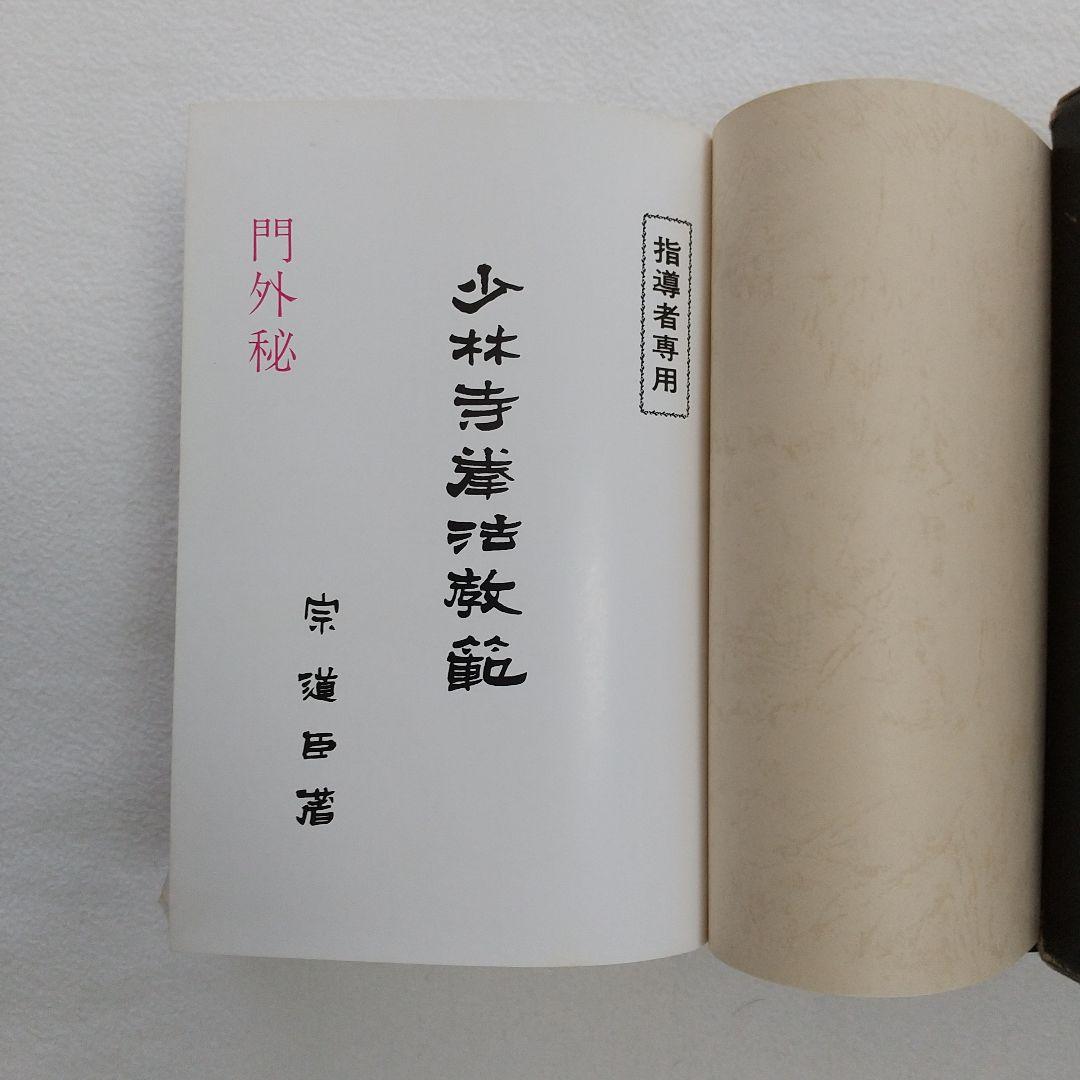 指導者専用
少林寺拳法教範
宗道臣著
門外秘